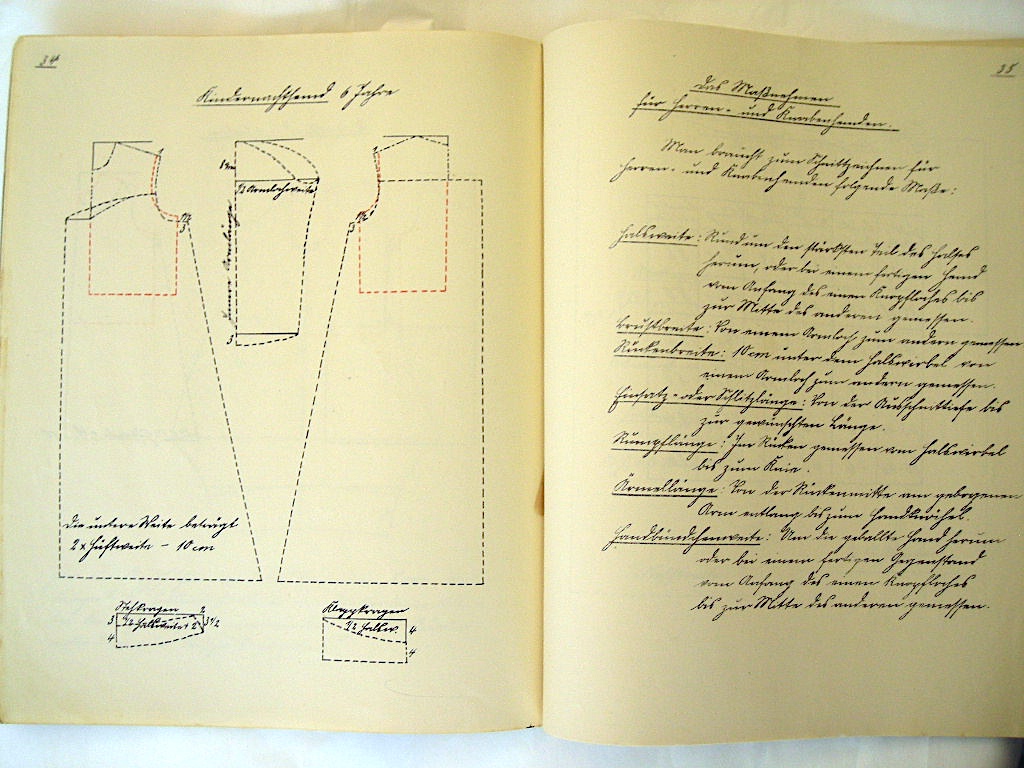 34
Kindernachthemd 6 Jahre
½ Armlochweite
3
3
Die untere Weite beträgt
2 x Hüftweite - 10 cm
Stehkragen 2
3 ½ Halsweite + 2 3½
4
Klappkragen
½ Halsw. 4
4
35
Das Maßnehmen
für Herren- und Knabenhemden.
Man braucht zum Schnittzeichnen für
Herren- und Knabenhemden folgende Maße:
Halsweite: Rund um den stärksten Teil des Halses
herum, oder bei einem fertigen Hemd
vom Anfang des einen Knopfloches bis
zur Mitte des anderen gemessen.
Brustbreite: Von einem Armloch zum andern gemessen
Rückenbreite: 10 cm unter dem Halswirbel von
einem Armloch zum andern gemessen.
Einsatz- oder Schlitzlänge: Von der Ausschnittiefe bis
zur gewünschten Länge.
Rumpflänge: Im Rücken gemessen vom Halswirbel
bis zum Knie.
Ärmellänge: Von der Rückenmitte am gebogenen
Arm entlang bis zum Handknöchel.
Handbündchenweite: Um die geballte Hand herum
oder bei einem fertigen Gegenstand
vom Anfang des einen Knopfloches
bis zur Mitte des anderen gemessen.